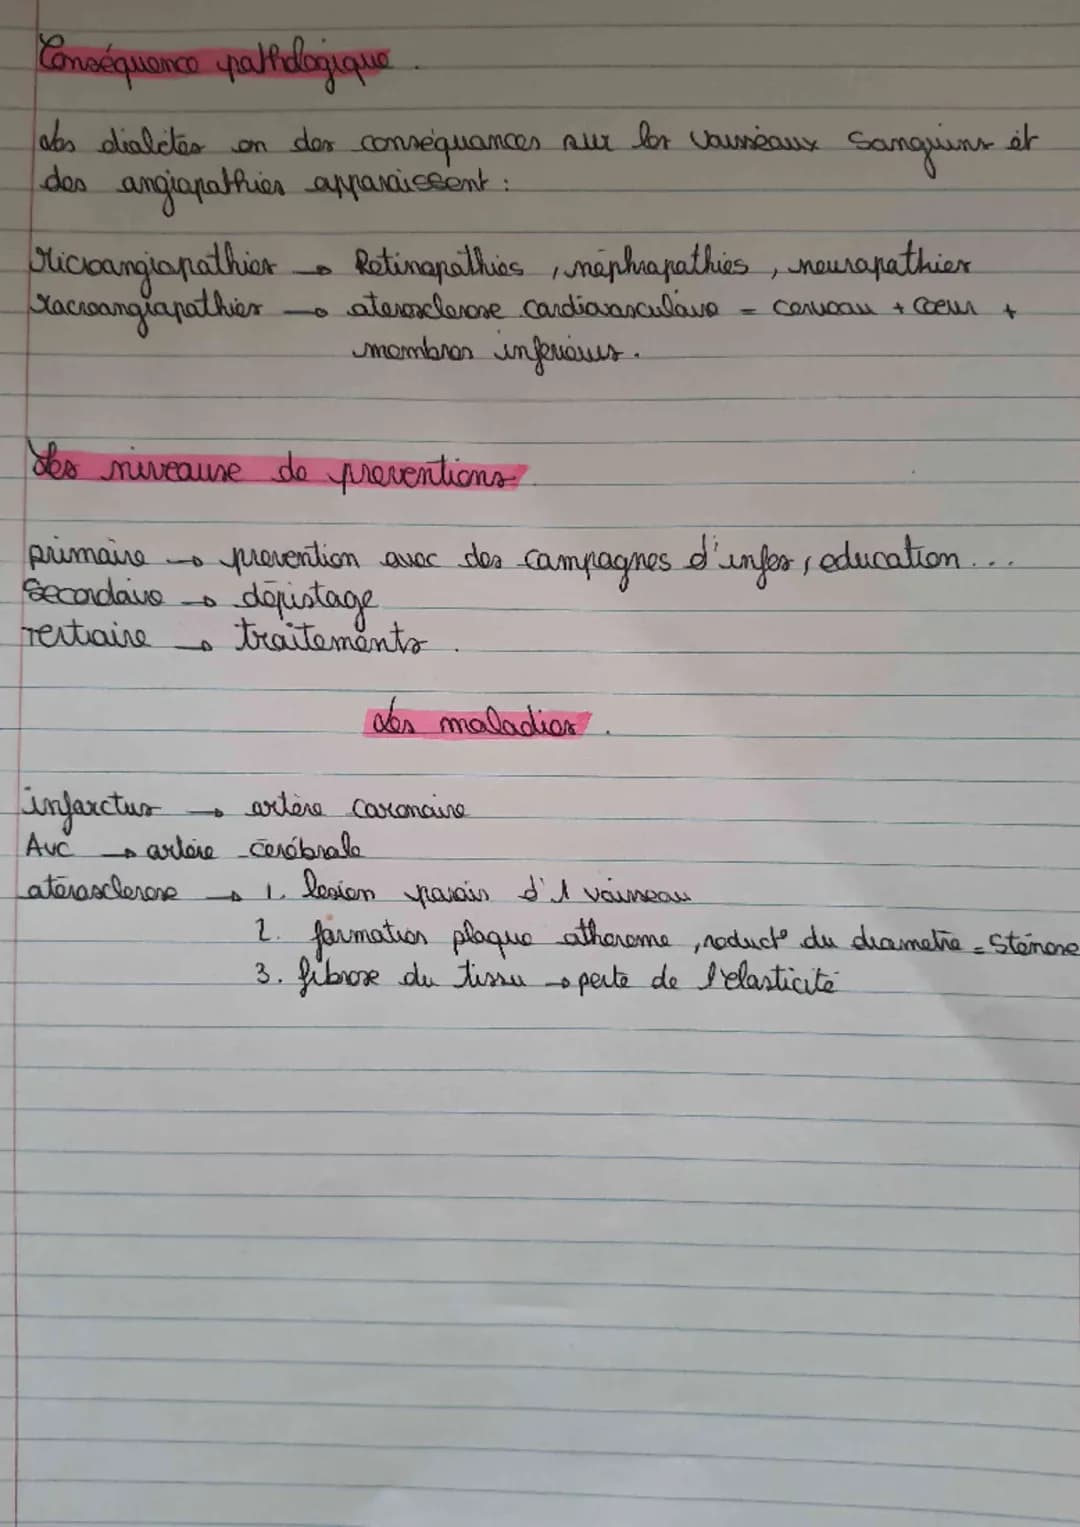 Conséquence pathologique.
Les diabètes on des conséquances sur les vaisséaux sanguins et
des angiopathies apparaissent :
Microangiopathies → Retinopathies, néphropathies, neuropathies
Macroangiopathies → aterosclerose cardiovasculaire = cerveau + coeur +
membres inferieurs.
Les niveause de preventions.
primaire → prevention avec des campagnes d'infos, education...
Secondaire → dépistage
Tertiaire → traitements.
Les maladies.
infarctus → artère coronaire
AVC → artère cérébrale
atérosclerose → 1. lesion parois d'1 vaisseau
2. formation plaque atherome, reduct° du diametre = Sténose
3. fibrose du tissu → perte de l'elasticité